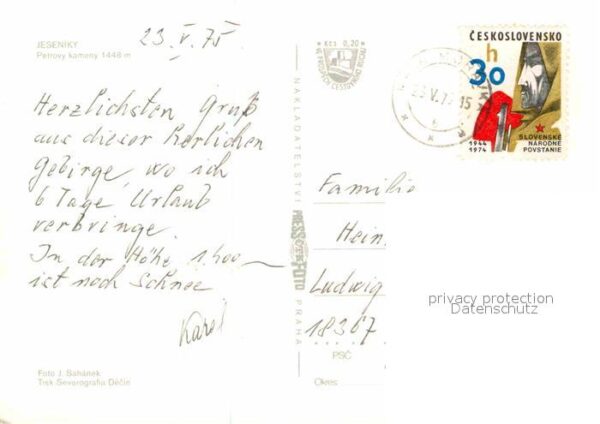 JESENÍKY
Petrovy kameny 1448 m
23. V. 75
Herzlichsten Gruß
aus dieser herlichen
Gebirge, wo ich
6 Tage Urlaub
verbringe.
In der Höhe 1400 –
ist noch Schnee
Karel
Foto J. Sahánek
Tisk Severografia Děčín
Kčs 0,20
NAKLADATELSTVÍ
PRESSFOTO
PRAHA
ČESKOSLOVENSKO
h
30
1944
1974
SLOVENSKÉ
NÁRODNÉ
POVSTANIE
Familie
Hein
Ludwig
18367
PSČ
Okres
privacy protection
Datenschutz